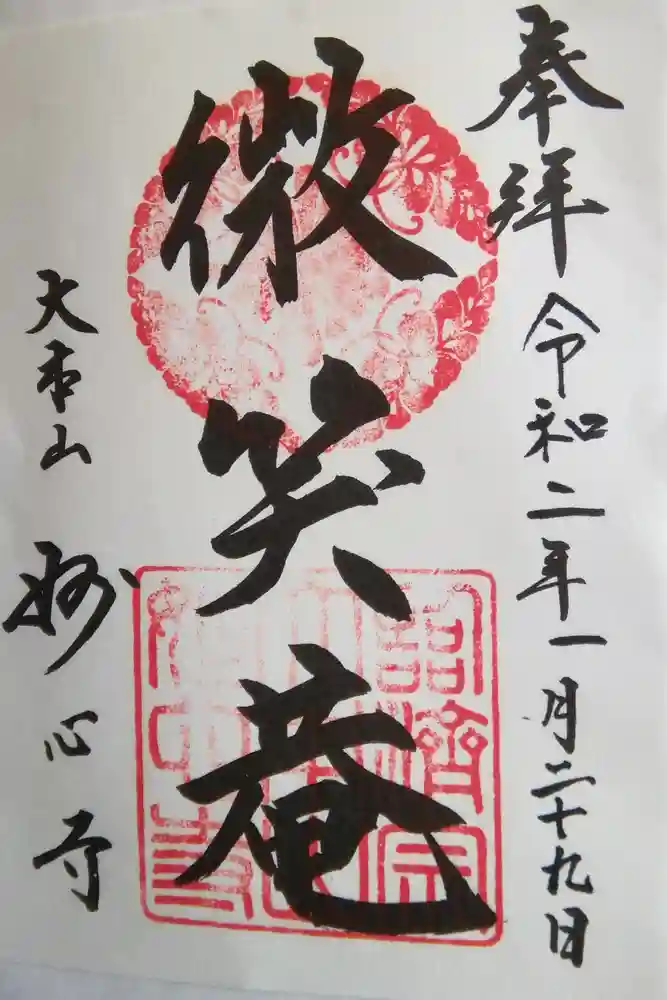 奉拝 令和二年一月二十九日
微笑庵
大本山 妙心寺